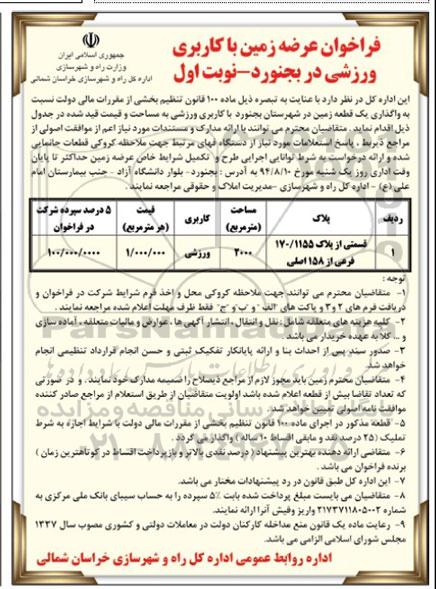 فراخوان عرضه زمین با کاربری
ورزشی در بجنورد-نوبت اول
جمهوری اسلامی ایران
وزارت راه و شهرسازی
اداره کل راه و شهرسازی خراسان شمالی
این اداره کل در نظر دارد با عنایت به تبصره ذیل ماده ۱۰۰ قانون تنظیم بخشی از مقررات مالی دولت نسبت
به واگذاری یک قطعه زمین در شهرستان بجنورد با کاربری ورزشی به مساحت و قیمت قید شده در جدول
ذیل اقدام نماید . متقاضیان محترم می توانند با ارائه مدارک و مستندات مورد نیاز اعم از موافقت اصولی از
مراجع ذیربط ، پاسخ استعلامات مورد نیاز از دستگاه های مرتبط جهت ملاحظه کروکی قطعات جانمایی
شده و ارائه درخواست به شرط توانایی اجرایی طرح و تکمیل شرایط خاص عرضه زمین حداکثر تا پایان
وقت اداری روز یک شنبه مورخ ۹۴/۸/۱۰ به آدرس : بجنورد- بلوار دانشگاه آزاد - جنب بیمارستان امام
علی (ع) - اداره کل راه و شهرسازی -مدیریت املاک و حقوقی مراجعه نمایند .
ردیف پلاک مساحت (مترمربع) کاربری قیمت (هر مترمربع) ۵ درصد سپرده شرکت در فراخوان
۱ قسمتی از پلاک ۱۷۰/۱۱۵۵ فرعی از ۱۵۸ اصلی ۲۰۰۰ ورزشی ۱/۰۰۰/۰۰۰ ۱۰۰/۰۰۰/۰۰۰۰
توجه :
۱- متقاضیان محترم می توانند جهت ملاحظه کروکی محل و اخذ فرم شرایط شرکت در فراخوان و
دریافت فرم های ۲ و ۳ و پاکت های "الف" و "ب" و "ج" فقط ظرف مهلت اعلام شده مراجعه نمایند .
۲- کلیه هزینه های متعلقه شامل: نقل و انتقال ، انتشار آگهی ها ، عوارض و مالیات متعلقه ، آماده سازی
و ... کلاً به عهده خریدار می باشد .
۳- صدور سند پس از احداث بنا و ارائه پایانکار تفکیک ثبتی و حسن انجام قرارداد تنظیمی انجام
خواهد شد.
۴- متقاضیان محترم زمین باید مجوز لازم از مراجع ذیصلاح را ضمیمه مدارک خود نمایند . و در صورتی
که تعداد تقاضا بیش از قطعه اعلام شده باشد اولویت متقاضیان از طریق استعلام از مراجع صادر کننده
موافقت نامه اصولی تعیین خواهد شد.
۵- قطعه مذکور در اجرای ماده ۱۰۰ قانون تنظیم بخشی از مقررات مالی دولت با شرایط اجاره به شرط
تملیک (۲۵ درصد نقد و مابقی اقساط ۱۰ ساله ) واگذار می گردد .
۶- متقاضی ارائه دهنده بهترین پیشنهاد ( درصد نقدی بالاتر و بازپرداخت اقساط در کوتاهترین زمان )
برنده فراخوان می باشد .
۷- این اداره کل طبق قانون در رد پیشنهادات مختار می باشد.
۸- متقاضیان می بایست مبلغ پرداخت شده بابت ۵٪ سپرده را به حساب سیبای بانک ملی مرکزی به
شماره ۲۱۷۳۷۱۱۸۰۵۰۰۲ واریز وفیش آنرا ارائه نمایند .
۹- رعایت ماده یک قانون منع مداخله کارکنان دولت در معاملات دولتی و کشوری مصوب سال ۱۳۳۷
مجلس شورای اسلامی الزامی می باشد.
اداره روابط عمومی اداره کل راه و شهرسازی خراسان شمالی